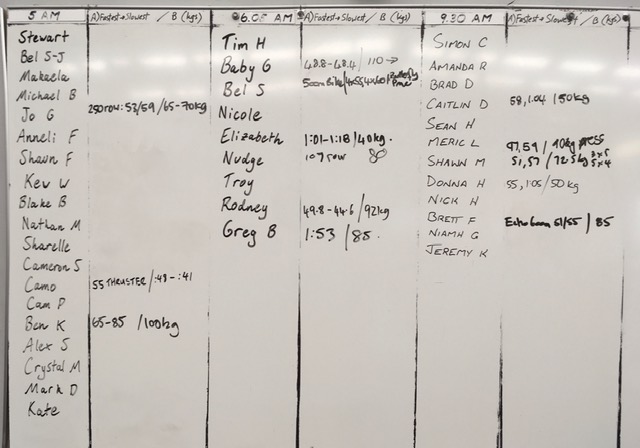 5 AM
A) Fastest → Slowest / B (kgs)
Stewart
Bel S-J
Makaela
Michael B
Jo G 250 row: 53/59 / 65-70kg
Anneli F
Shawn F
Kev W
Blake B
Nathan M
Sharelle
Cameron S
Camo 55 THRUSTER / :48 - :41
Cam P
Ben K 65-85 / 100kg
Alex S
Crystal M
Mark D
Kate
6.05 AM
A) Fastest → Slowest / B (kgs)
Tim H
Baby G 48.8-48.4 / 110 →
Bel S 500m Bike /
Nicole
Elizabeth 1:01-1:18 / 40kg.
Nudge 107 row
Troy
Rodney 49.8-44.6 / 92kg
Greg B 1:53 / 85.
9.30 AM
A) Fastest → Slowest / B (kgs)
SIMON C
AMANDA R
BRAD D
CAITLIN D 58, 1.04 / 50kg
SEAN H
MERIC L 47,59 / 40kg press
SHAWN M 51,57 / 72.5kg 3x5 5x4
DONNA H 55, 1:05 / 50kg
NICK H
BRETT F 51/55 / 85
NIAMH G
JEREMY K